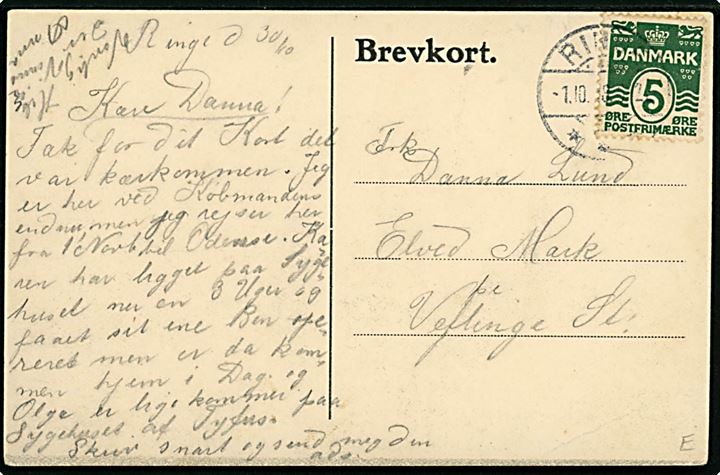 Ringe d 30/10
Kære Danna!
Tak for dit Kort det
var kærkommen. Jeg
er her ved Købmandens
endnu, men jeg rejser her
fra 1 Novb til Odense. Ka-
ren har ligget paa Syge-
huset nu en 3 Uger og
faaet sit ene Ben ope-
reret men er da kom-
men hjem i Dag. og
Olga er lige kommen paa
Sygehuset af Tyfus.
Skriv snart og send meg din
ads.
Brevkort.
-1.10.
DANMARK
5
ØRE ØRE
POSTFRIMÆRKE
Frk.
Danna Lund
Elved Mark
pr
Veflinge St.
E